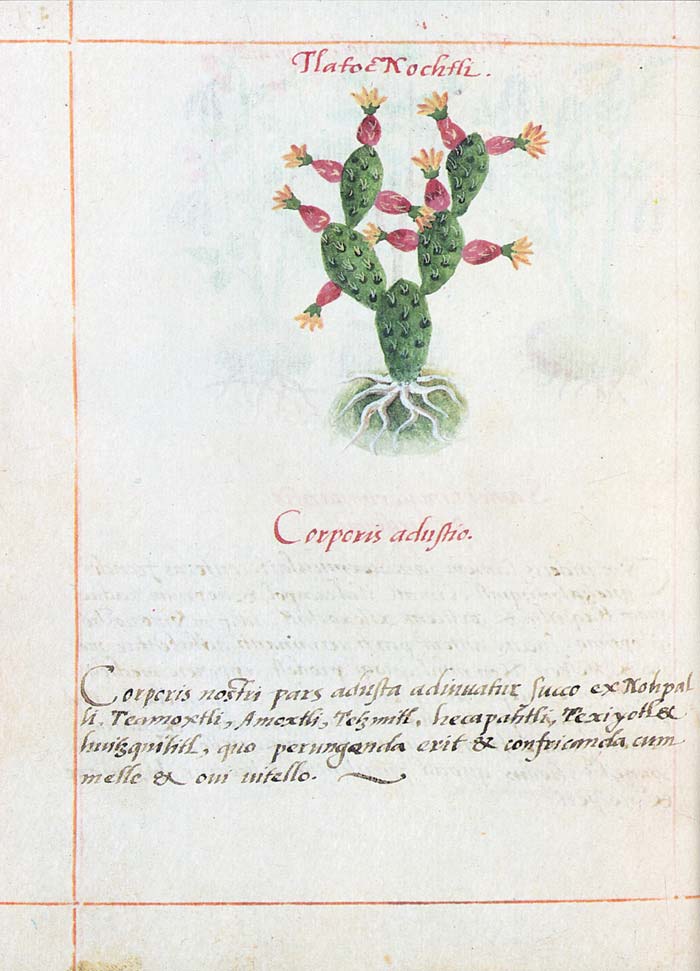 Tlatoc Nochtli.
Corporis adustio.
Corporis nostri pars adusta adiuuatur succo ex Nohpal
li, Teamoxtli, Amoxtli, Tetzmitl, hecapahtli, Texiyotl &
huitzquilitl, quo perungenda erit & confricanda cum
melle & oui uitello.